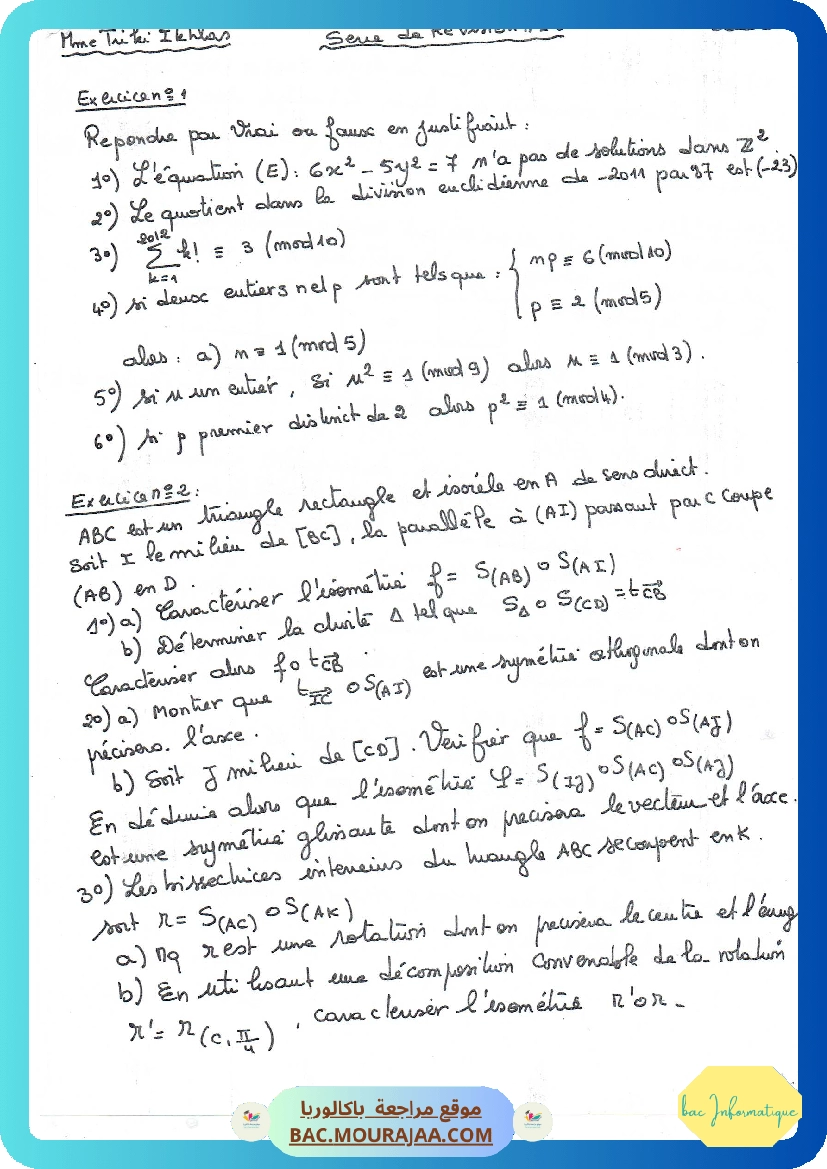 Mme Triki Ikhlas Serie de Revision
Exercice n°1
Repondre par Vrai ou fausx en justifiant :
1°) L'équation (E) : 6x² - 5y² = 7 n'a pas de solutions dans ℤ².
2°) Le quotient dans la division euclidienne de -2011 par 87 est (-23)
3°) ∑_{k=1}^{2012} k! ≡ 3 (mod 10)
4°) si deux entiers n et p sont tels que : { np ≡ 6 (mod 10)
p ≡ 2 (mod 5)
alors : a) n ≡ 1 (mod 5)
5°) si n un entier, Si n² ≡ 1 (mod 9) alors n ≡ 1 (mod 3).
6°) si p premier distinct de 2 alors p² ≡ 1 (mod 4).
Exercice n°2 :
ABC est un triangle rectangle et isocèle en A de sens direct.
Soit I le milieu de [BC], la parallèle à (AI) passant par C coupe
(AB) en D.
1°) a) Caractériser l'isométrie f = S(AB) o S(AI)
b) Déterminer la droite Δ tel que SΔ o S(CD) = t\vec{CB}
Caractériser alors f o t\vec{CB}.
2°) a) Montrer que t\vec{IC} o S(AI) est une symétrie orthogonale dont on
précisera l'axe.
b) Soit J milieu de [CD]. Vérifier que f = S(AC) o S(AJ)
En déduire alors que l'isométrie φ = S(IJ) o S(AC) o S(AJ)
est une symétrie glissante dont on precisera le vecteur et l'axe.
3°) Les bissectrices interieurs du triangle ABC se coupent en K.
soit r = S(AC) o S(AK)
a) Mq r est une rotation dont on precisera le centre et l'ang
b) En utilisant une décomposition convenable de la rotation
r' = r(C, π/4), caractériser l'isométrie r' o r.
موقع مراجعة باكالوريا
BAC.MOURAJAA.COM
bac Informatique